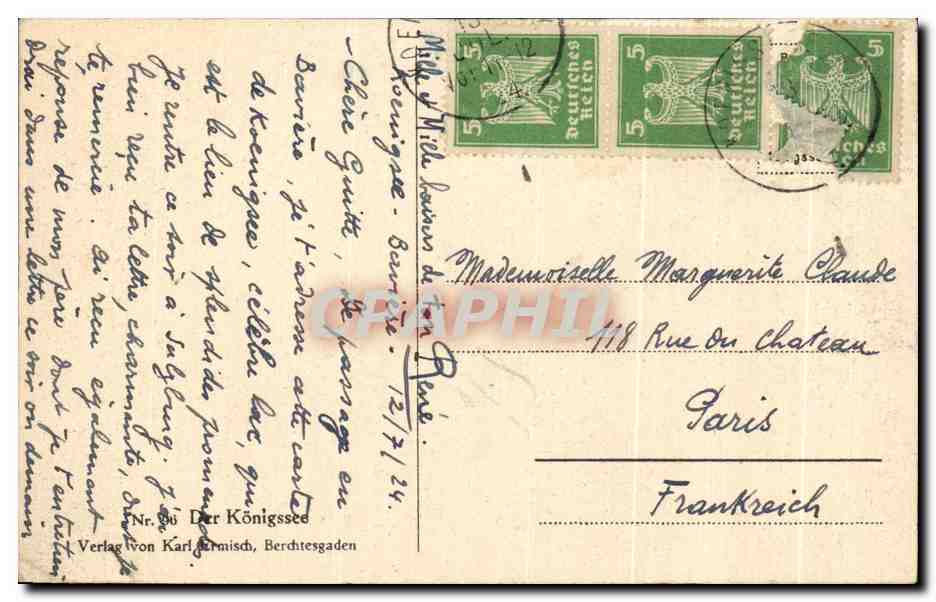 Mille et Mille baisers de ton René.
Koenigsee - Bavière - 12/7/24.
- Chère Guitte, de passage en
Bavière, je t'adresse cette carte
de Koenigsee, célèbre lac, qui
est le lieu de splendides promenades.
Je rentre ce soir à Salzburg. J'ai
bien reçu ta lettre, charmante, dont je
te remercie. Ai reçu également
reponse de mon père dont je t'entretien-
drai dans une lettre ce soir ou demain
Nr. Der Königssee
Verlag von Karl Ermisch, Berchtesgaden
5
Deutsches
Reich
5
5
Deutsches
Reich
5
5
Mademoiselle Marguerite Claude
118 Rue du Chateau
Paris
Frankreich
CPAPHIL